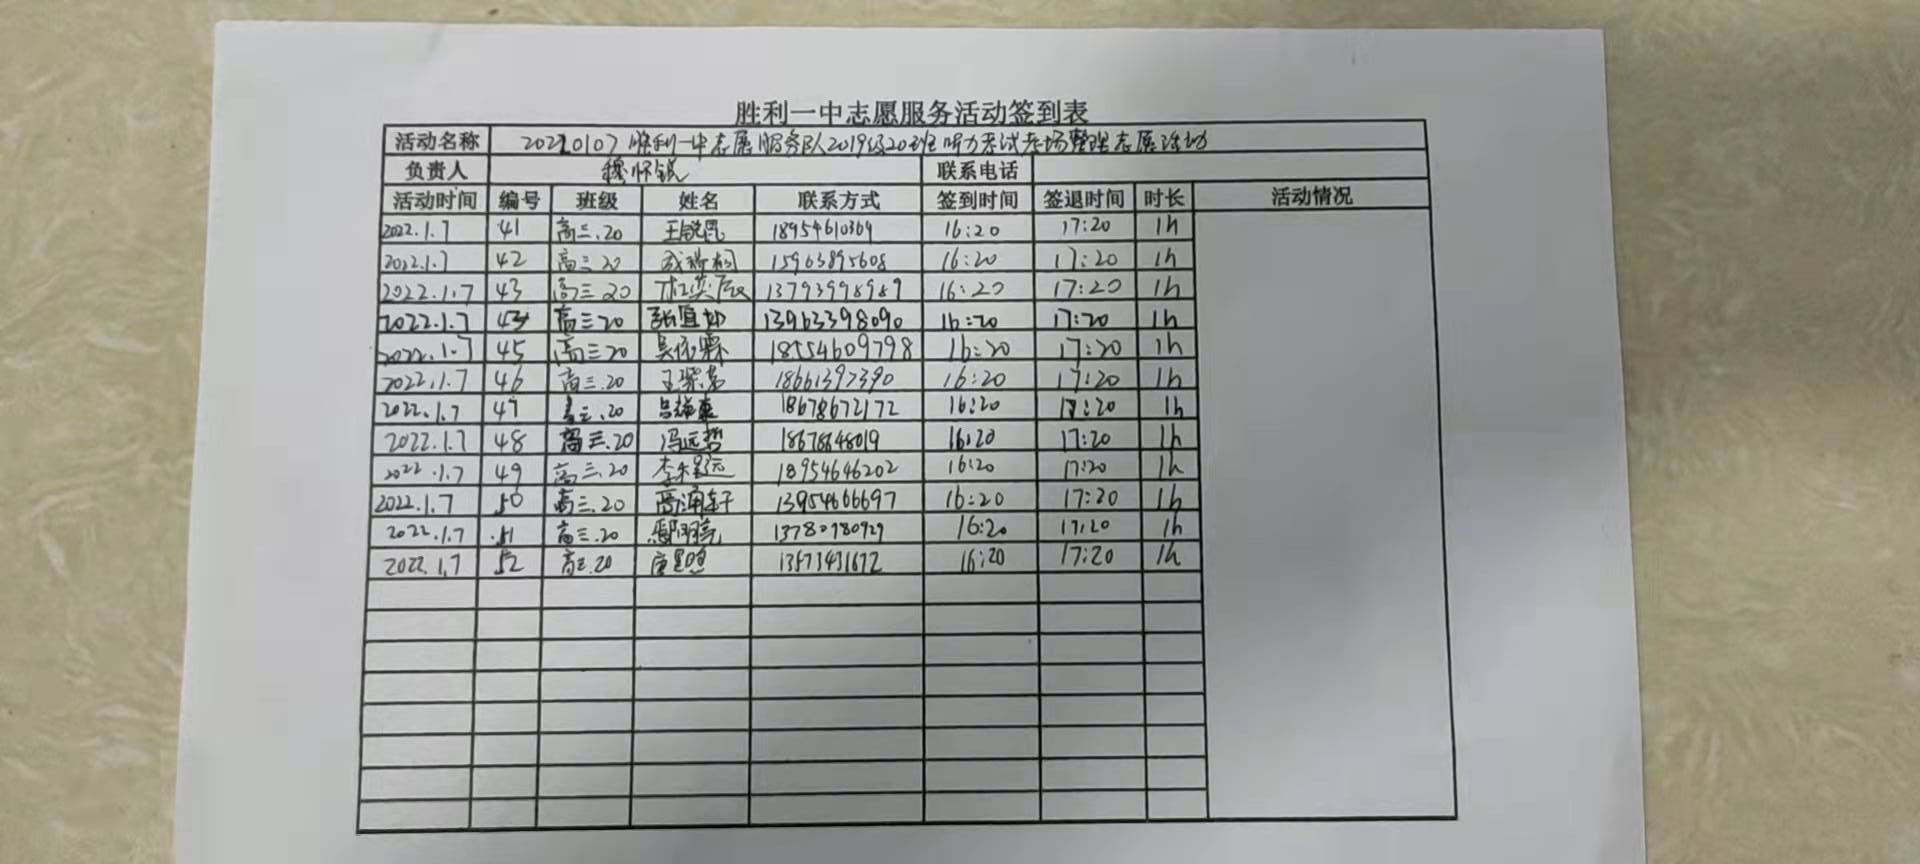 胜利一中志愿服务活动签到表
活动名称 20220107胜利一中志愿服务队2019级20班听力考试考场整理志愿活动
负责人 穆怀锐 联系电话
活动时间 编号 班级 姓名 联系方式 签到时间 签退时间 时长 活动情况
2022.1.7 41 高三.20 18954610369 16:20 17:20 1h
2022.1.7 42 高三20 15963895608 16:20 17:20 1h
2022.1.7 43 高三20 13793998989 16:20 17:20 1h
2022.1.7 高三20 张宜如 13963398090 16:20 17:20 1h
2022.1.7 45 高三20 吴依霖 18554609798 16:20 17:20 1h
2022.1.7 46 高三.20 18661397390 16:20 17:20 1h
2022.1.7 47 高三.20 18678672172 16:20 17:20 1h
2022.1.7 48 高三.20 冯远哲 18678648019 16:20 17:20 1h
2022.1.7 49 高三.20 18954646202 16:20 17:20 1h
2022.1.7 50 高三.20 13954606697 16:20 17:20 1h
2022.1.7 51 高三.20 13780780929 16:20 17:20 1h
2022.1.7 52 高三.20 16:20 17:20 1h